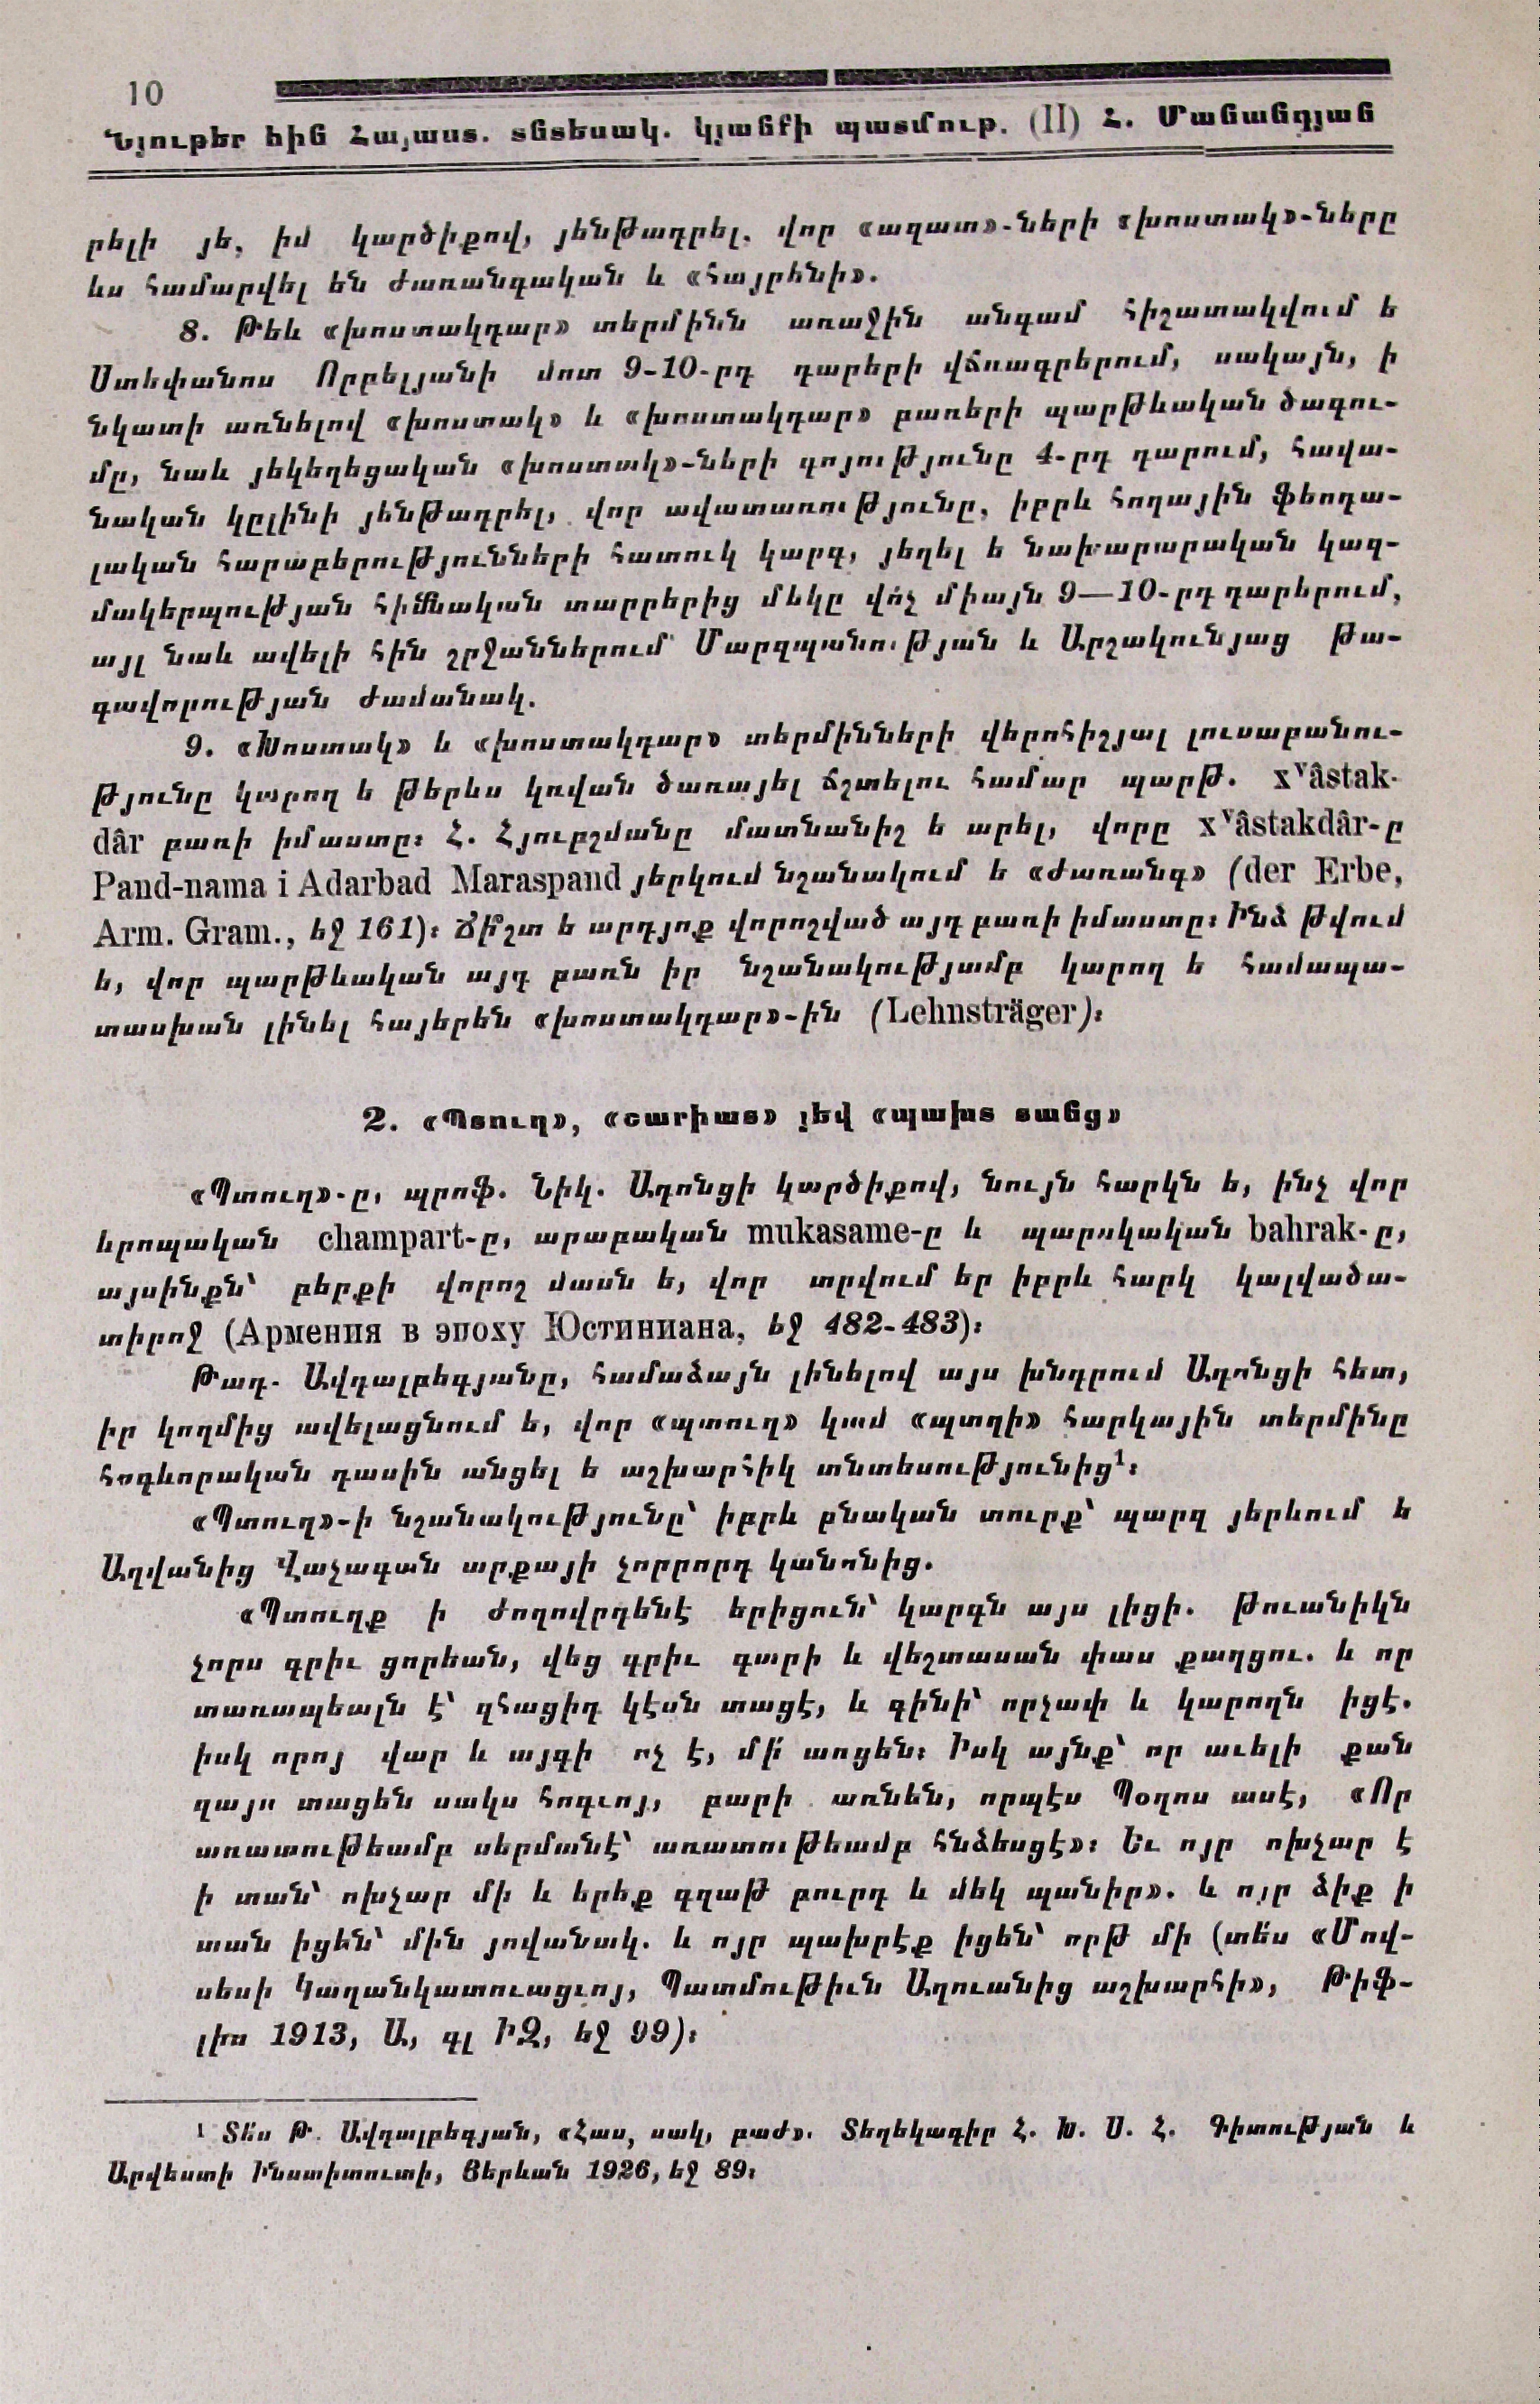 10
Նյութեր հին Հայաստ. տնտեսակ. կյանքի պատմութ. (II) Հ. Մանանդյան
րելի յե, իմ կարծիքով, յենթադրել. վոր «ազատ»-ների «խոստակ»-ները
ևս համարվել են ժառանգական և «հայրենի».
8. Թեև «խոստակդար» տերմինն առաջին անգամ հիշատակվում ե
Ստեփանոս Որբելյանի մոտ 9-10-րդ դարերի վճռագրերում, սակայն, ի
նկատի առնելով «խոստակ» և «խոստակդար» բառերի պարթևական ծագու-
մը, նաև յեկեղեցական «խոստակ»-ների գոյությունը 4-րդ դարում, հավա-
նական կըլինի յենթադրել, վոր ավատառությունը, իբրև հողային ֆեոդա-
լական հարաբերությունների հատուկ կարգ, յեղել ե նախարարական կազ-
մակերպության հիմնական տարրերից մեկը վո՛չ միայն 9—10-րդ դարերում,
այլ նաև ավելի հին շրջաններում՝ Մարզպանության և Արշակունյաց թա-
գավորության ժամանակ.
9. «Խոստակ» և «խոստակդար» տերմինների վերոհիշյալ լուսաբանու-
թյունը կարող ե թերևս կռվան ծառայել ճշտելու համար պարթ. xᵛâstak-
dâr բառի իմաստը: Հ. Հյուբշմանը մատնանիշ ե արել, վորը xᵛâstakdâr-ը
Pand-nama i Adarbad Maraspand յերկում նշանակում ե «ժառանգ» (der Erbe,
Arm. Gram., եջ 161): Ճի՞շտ ե արդյոք վորոշված այդ բառի իմաստը: Ինձ թվում
ե, վոր պարթևական այդ բառն իր նշանակությամբ կարող ե համապա-
տասխան լինել հայերեն «խոստակդար»-ին (Lehnsträger):
2. «Պտուղ», «շարիատ» յեվ «պախտ տանց»
«Պտուղ»-ը, պրոֆ. Նիկ. Ադոնցի կարծիքով, նույն հարկն ե, ինչ վոր
երոպական champart-ը, արաբական mukasame-ը և պարսկական bahrak-ը,
այսինքն՝ բերքի վորոշ մասն ե, վոր տրվում եր իբրև հարկ կալվածա-
տիրոջ (Армения в эпоху Юстиниана, եջ 482-483):
Թադ. Ավդալբեգյանը, համաձայն լինելով այս խնդրում Ադոնցի հետ,
իր կողմից ավելացնում ե, վոր «պտուղ» կամ «պտղի» հարկային տերմինը
հոգևորական դասին անցել ե աշխարհիկ տնտեսությունից¹:
«Պտուղ»-ի նշանակությունը՝ իբրև բնական տուրք՝ պարզ յերևում ե
Աղվանից Վաչագան արքայի չորրորդ կանոնից.
«Պտուղք ի ժողովրդենէ երիցուն՝ կարգն այս լիցի. թուանիկն
չորս գրիւ ցորեան, վեց գրիւ գարի և վեշտասան փաս քաղցու. և որ
տառապեալն է՝ զհացիդ կէսն տացէ, և գինի՝ որչափ և կարողն իցէ.
իսկ որոյ վար և այգի ոչ է, մի՛ առցեն: Իսկ այնք՝ որ աւելի քան
զայս տացեն սակս հոգւոյ, բարի առնեն, որպէս Պօղոս ասէ, «Որ
առատութեամբ սերմանէ՝ առատութեամբ հնձեսցէ»: Եւ ոյր ոխչար է
ի տան՝ ոխչար մի և երեք գղաթ բուրդ և մեկ պանիր». և ոյր ձիք ի
տան իցեն՝ մին յովանակ. և ոյր պախրէք իցեն՝ որթ մի (տե՛ս «Մով-
սեսի Կաղանկատուացւոյ, Պատմութիւն Աղուանից աշխարհի», Թիֆ-
լիս 1913, Ա, գլ ԻԶ, եջ 99):
¹ Տե՛ս Թ. Ավդալբեգյան, «Հաս, սակ, բաժ». Տեղեկագիր Հ. Խ. Ս. Հ. Գիտության և
Արվեստի Ինստիտուտի, Յերևան 1926, եջ 89: